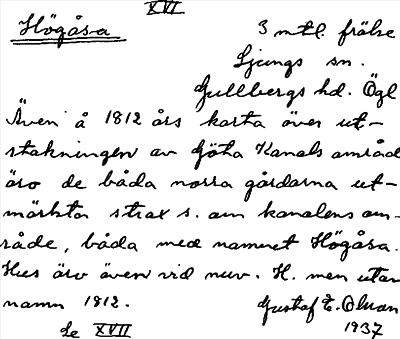 XVI
Högåsa 3 mtl. frälse
Ljungs sn.
Gullbergs hd. Ögl
Även å 1812 års karta över ut-
stakningen av Göta Kanals områd
äro de båda norra gårdarna ut-
märkta strax s. om kanalens om-
råde, båda med namnet Högåsa.
Hus äro även vid nuv. H. men utan
namn 1812. Gustaf E. Olsson
Se XVII 1937